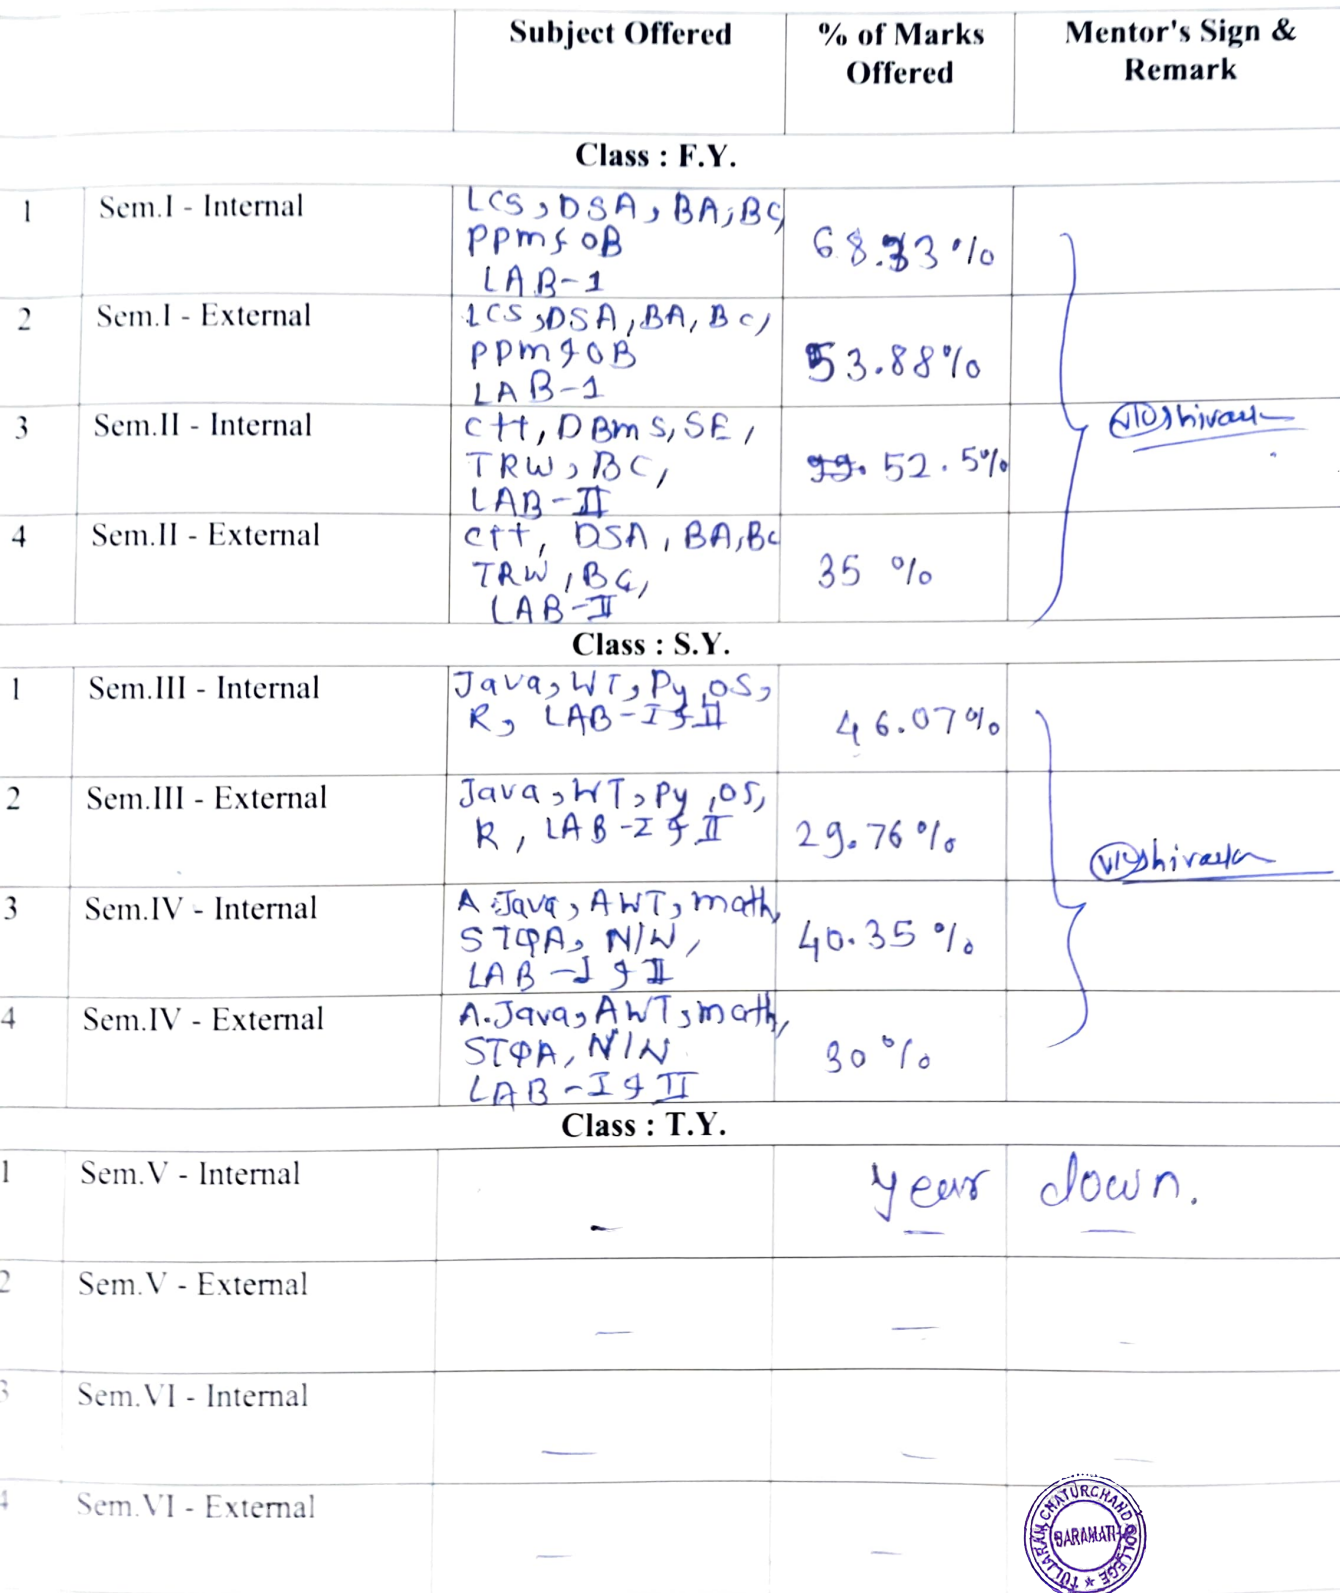 Subject Offered % of Marks Offered Mentor's Sign & Remark
Class : F.Y.
1 Sem.I - Internal LCS, DSA, BA, BC,
PPM & OB 68.33 %
LAB-1
2 Sem.I - External LCS, DSA, BA, BC,
PPM & OB 53.88%
LAB-1
3 Sem.II - Internal C++, DBMS, SE,
TRW, BC, 52.5%
LAB-II
4 Sem.II - External C++, DSA, BA, BC
TRW, BC, 35 %
LAB-II
Class : S.Y.
1 Sem.III - Internal Java, WT, Py, OS,
R, LAB-I & II 46.07%
2 Sem.III - External Java, WT, Py, OS,
R, LAB-I & II 29.76 %
3 Sem.IV - Internal A.Java, AWT, math,
STQA, N/W, 40.35 %
LAB-I & II
4 Sem.IV - External A.Java, AWT, math,
STQA, N/W 30 %
LAB-I & II
Class : T.Y.
1 Sem.V - Internal - year down.
2 Sem.V - External - - -
3 Sem.VI - Internal - - -
4 Sem.VI - External - -
TULJARAM CHATURCHAND COLLEGE
BARAMATI